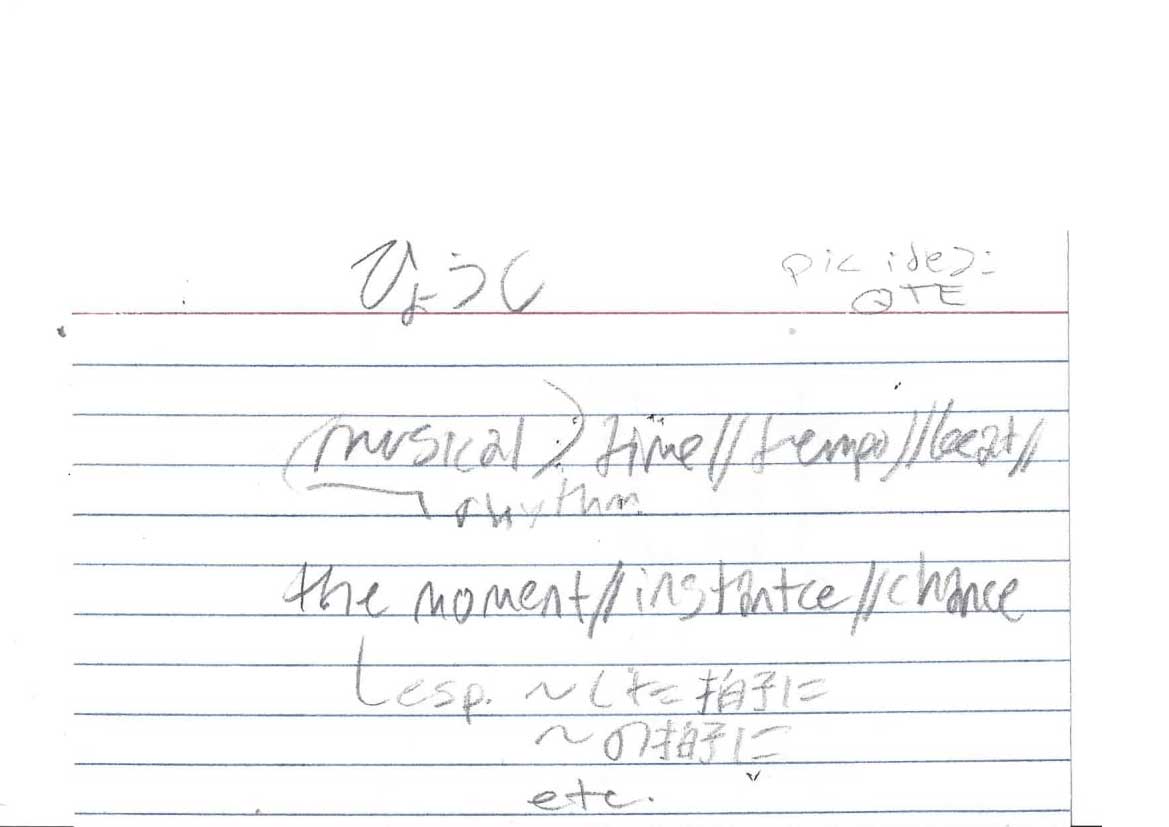 ひょうし
pic idea:
QTE
(musical) time//tempo//beat//
rhythm
the moment//instantce//chance
esp. ～した拍子に
～の拍子に
etc.